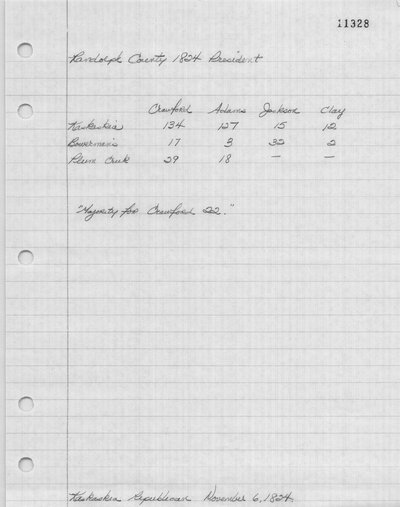 11328
Randolph County 1824 President
Crawford Adams Jackson Clay
Kaskaskia 134 127 15 12
Bowerman's 17 3 32 2
Plum Creek 29 18 — —
"Majority for Crawford 22."
Kaskaskia Republican November 6, 1824.